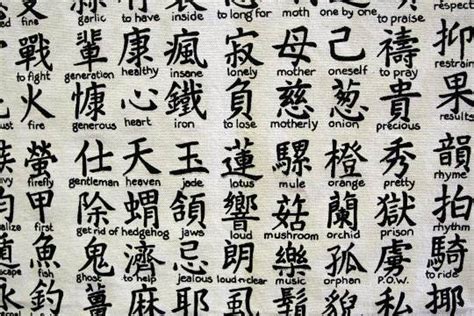 garlic to have inside to long for moth one by one to praise respect
戰 輩 康 瘋 寂 母 己 禱 抑
to fight generation healthy insane lonely mother oneself to pray restrain
火 慷 心 鐵 負 慈 葱 貴 果
fire generous heart iron to lose motherly onion precious results
螢 仕 天 玉 蓮 騾 橙 秀 韻
firefly gentleman heaven jade lotus mule orange pretty rhyme
甲 除 蝟 頷 響 菇 蘭 獄 拍
first get rid of hedgehog jaws loud mushroom orchid prison rhythm
魚 鬼 濟 忌 朗 樂 孤 虜 騎
fish ghost to help jealous loud n clear music orphan P.O.W. to ride
釣 薑 麻 耶 虱 鬚 貌 私